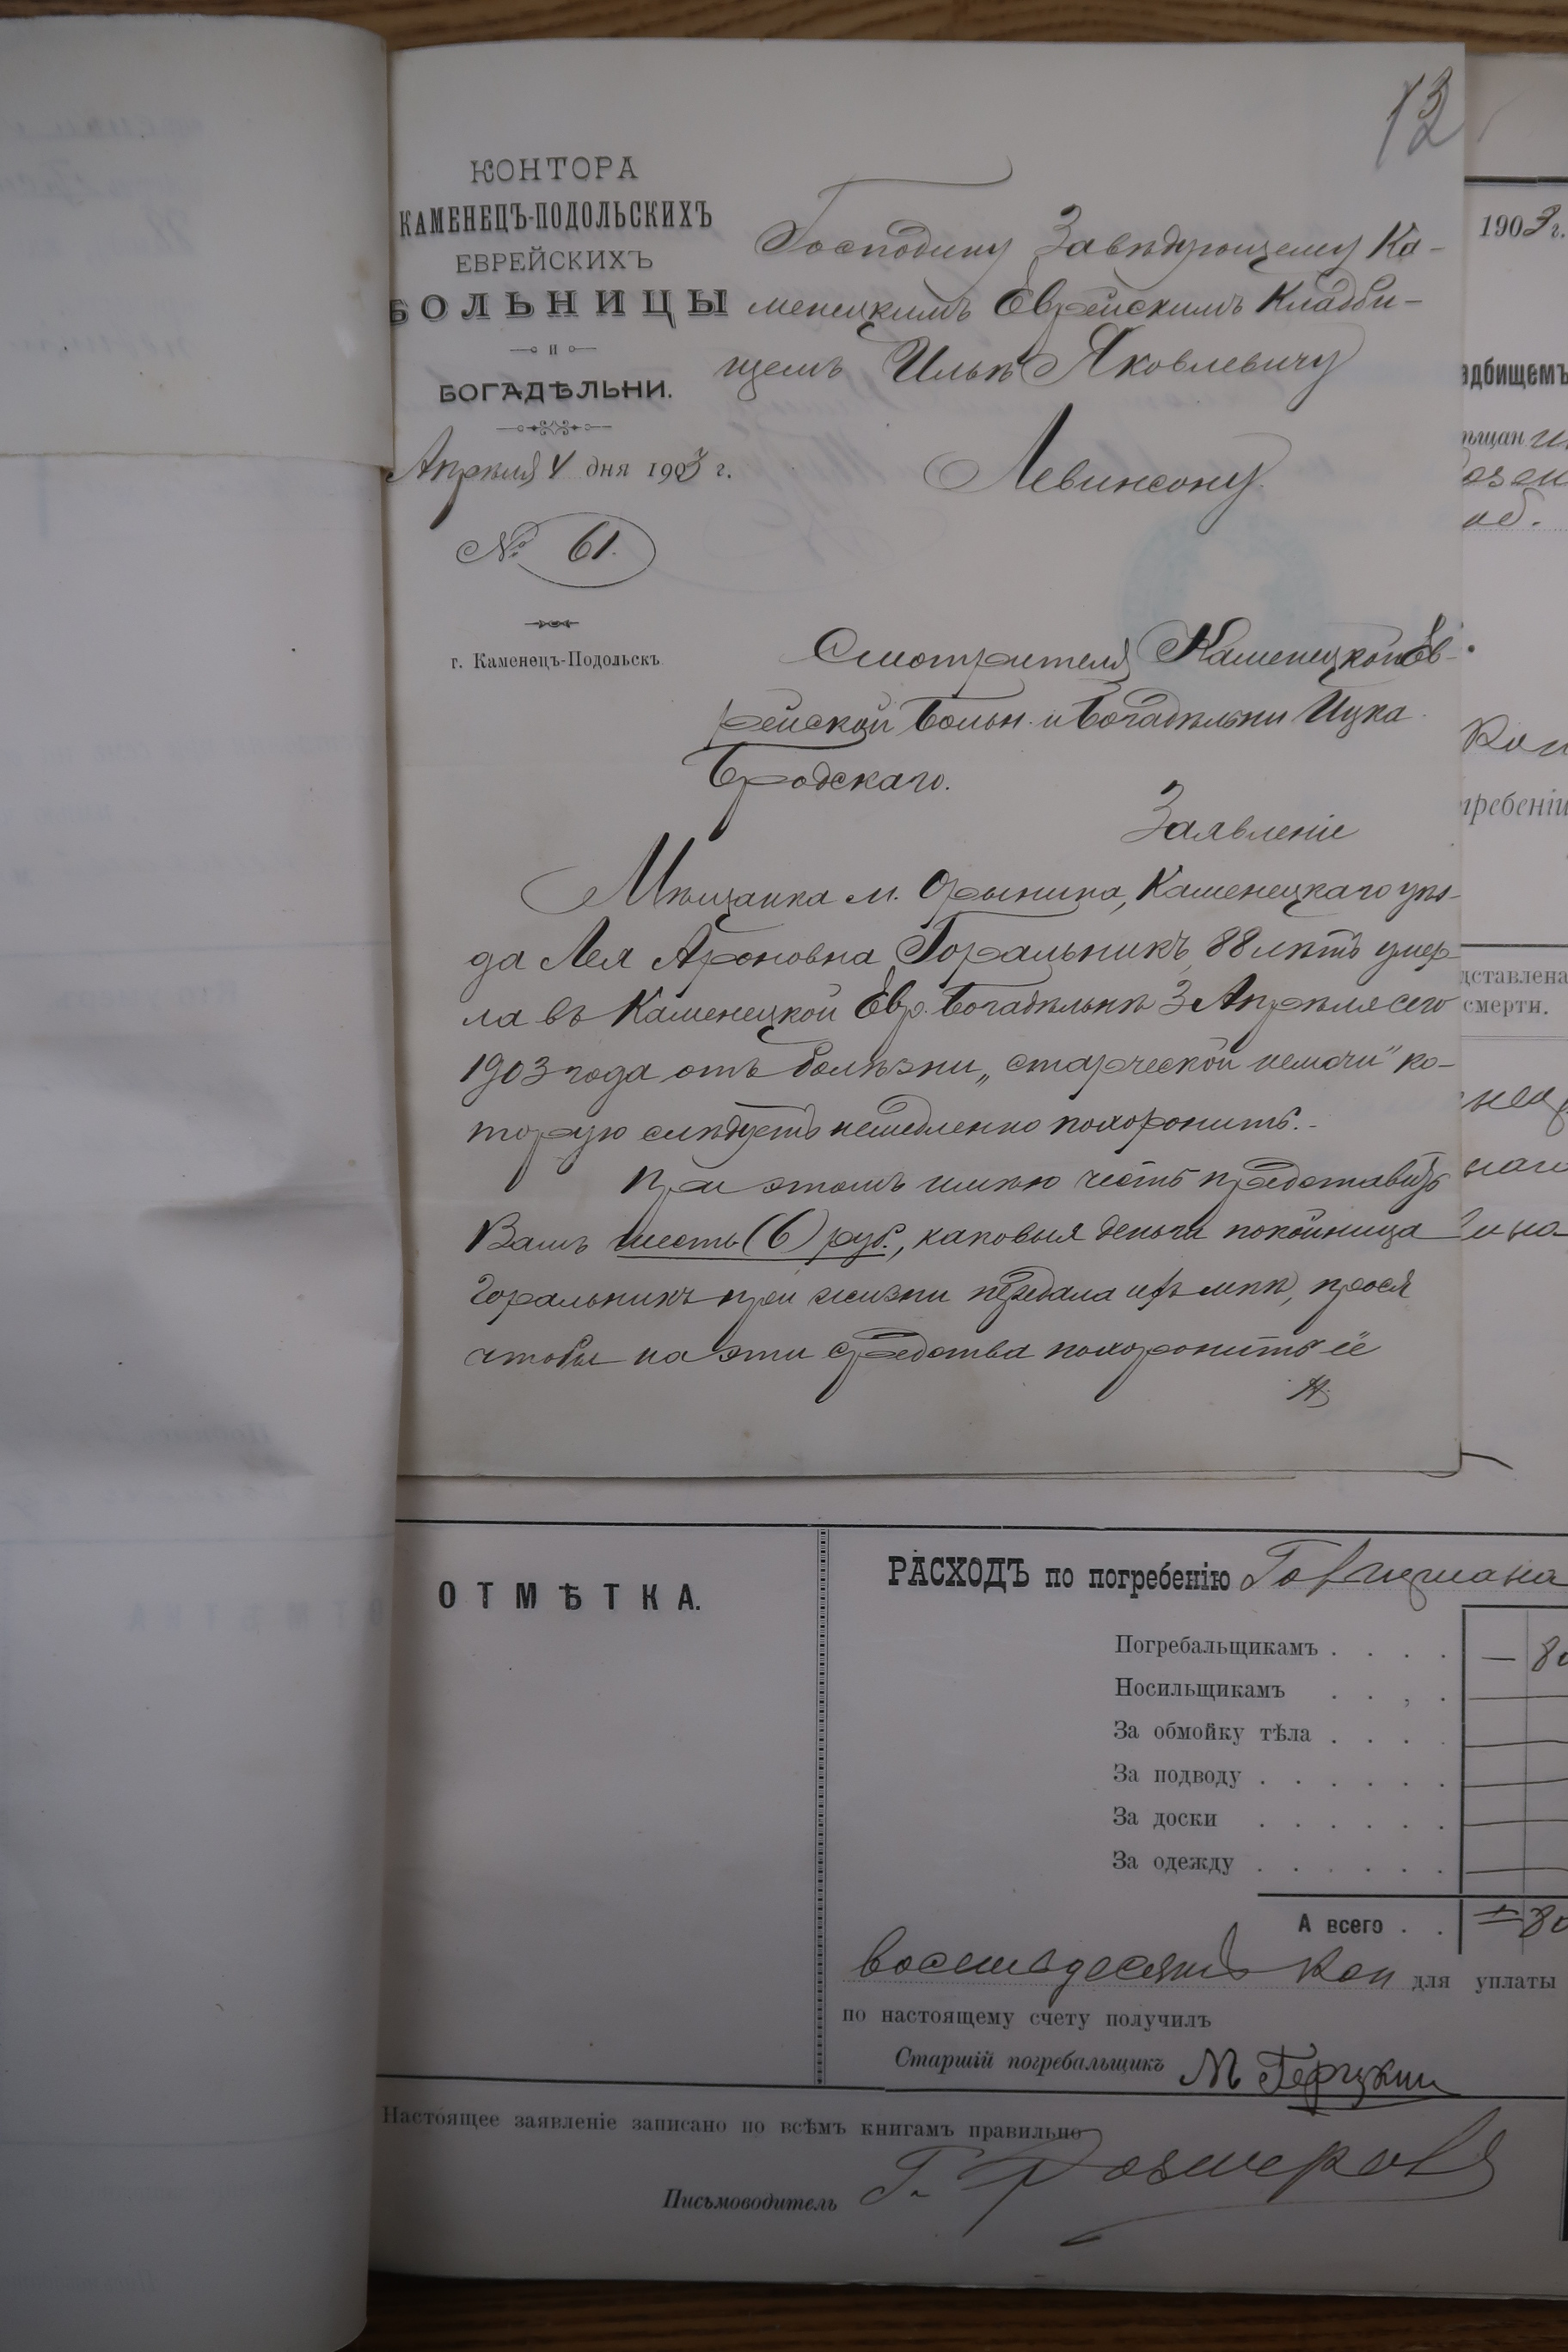 13
КОНТОРА
КАМЕНЕЦЪ-ПОДОЛЬСКИХЪ
ЕВРЕЙСКИХЪ
БОЛЬНИЦЫ
И
БОГАДѢЛЬНИ.
Апрѣля 4 дня 1903 г.
№ 61.
г. Каменецъ-Подольскъ
Господину Завѣдующему Ка-
менецкимъ Еврейскимъ Кладби-
щемъ Ильѣ Яковлевичу
Левинсону.
Смотрителя Каменецкой Ев-
рейской Больн. и Богадѣльни Ицка
Бродскаго.
Заявленіе
Мѣщанка м. Орынина, Каменецкаго уѣз-
да Лея Ароновна Горальникъ, 88 лѣтъ умер-
ла въ Каменецкой Евр. Богадѣльнѣ 3 Апрѣля сего
1903 года отъ болѣзни „старческой немочи" ко-
торую слѣдуетъ немедленно похоронить.-
При этомъ имѣю честь представить
Вамъ шесть (6) руб., каковыя деньги покойница
Горальникъ при жизни передала ихъ мнѣ, прося
чтобы на эти средства похоронить её
1903 г.
адбищемъ
ѣщан
Коп
гребеніи
дставлена
смерти.
ОТМѢТКА.
РАСХОДЪ по погребенію
Погребальщикамъ . . . . — 80
Носильщикамъ . . , .
За обмойку тѣла . . . .
За подводу . . . . . .
За доски . . . . . .
За одежду . . . . . .
А всего . . 80
восемьдесятъ Коп для уплаты
по настоящему счету получилъ
Старшій погребальщикъ М Герцкин
Настоящее заявленіе записано по всѣмъ книгамъ правильно
Письмоводитель Г.